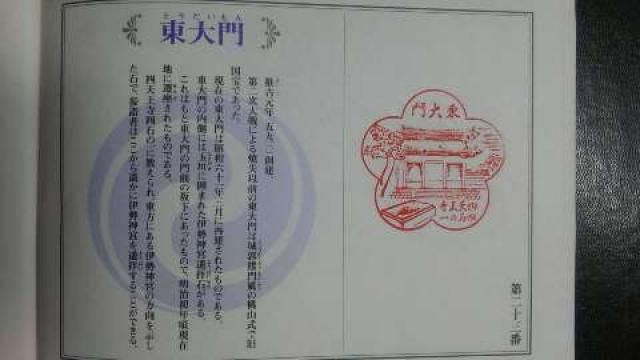 第二十三番
東大門
四天王寺
四石の一
とうだいもん
東大門
推古元年(五九三)創建。
第二次大戦による焼失以前の東大門は城郭楼門風の桃山式で旧
国宝であった。
現在の東大門は昭和六十 年 月に再建されたものである。
東大門の内側には玉垣に囲まれた伊勢神宮遥拝石がある。
これはもと東大門の門前の坂下にあったもので、明治初年頃現在
地に遷座されたものである。
四天王寺四石の一に数えられ、東方にある伊勢神宮の方向を示し
た石で、参詣者はここから遥かに伊勢神宮を遥拝することができる。